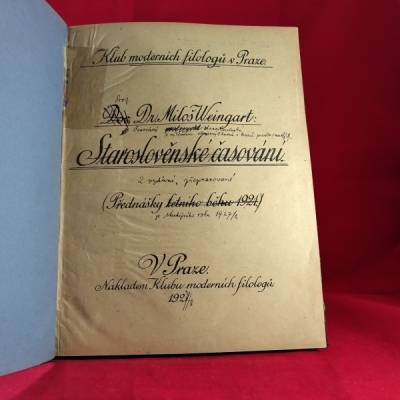 Klub moderních filologů v Praze.
Prof.
Doc. Dr. Miloš Weingart:
Staroslověnské časování.
2. vydání, přepracované
(Přednášky letního běhu 1921)
ze studijního roku 1927/8
V Praze.
Nákladem Klubu moderních filologů
1927/8